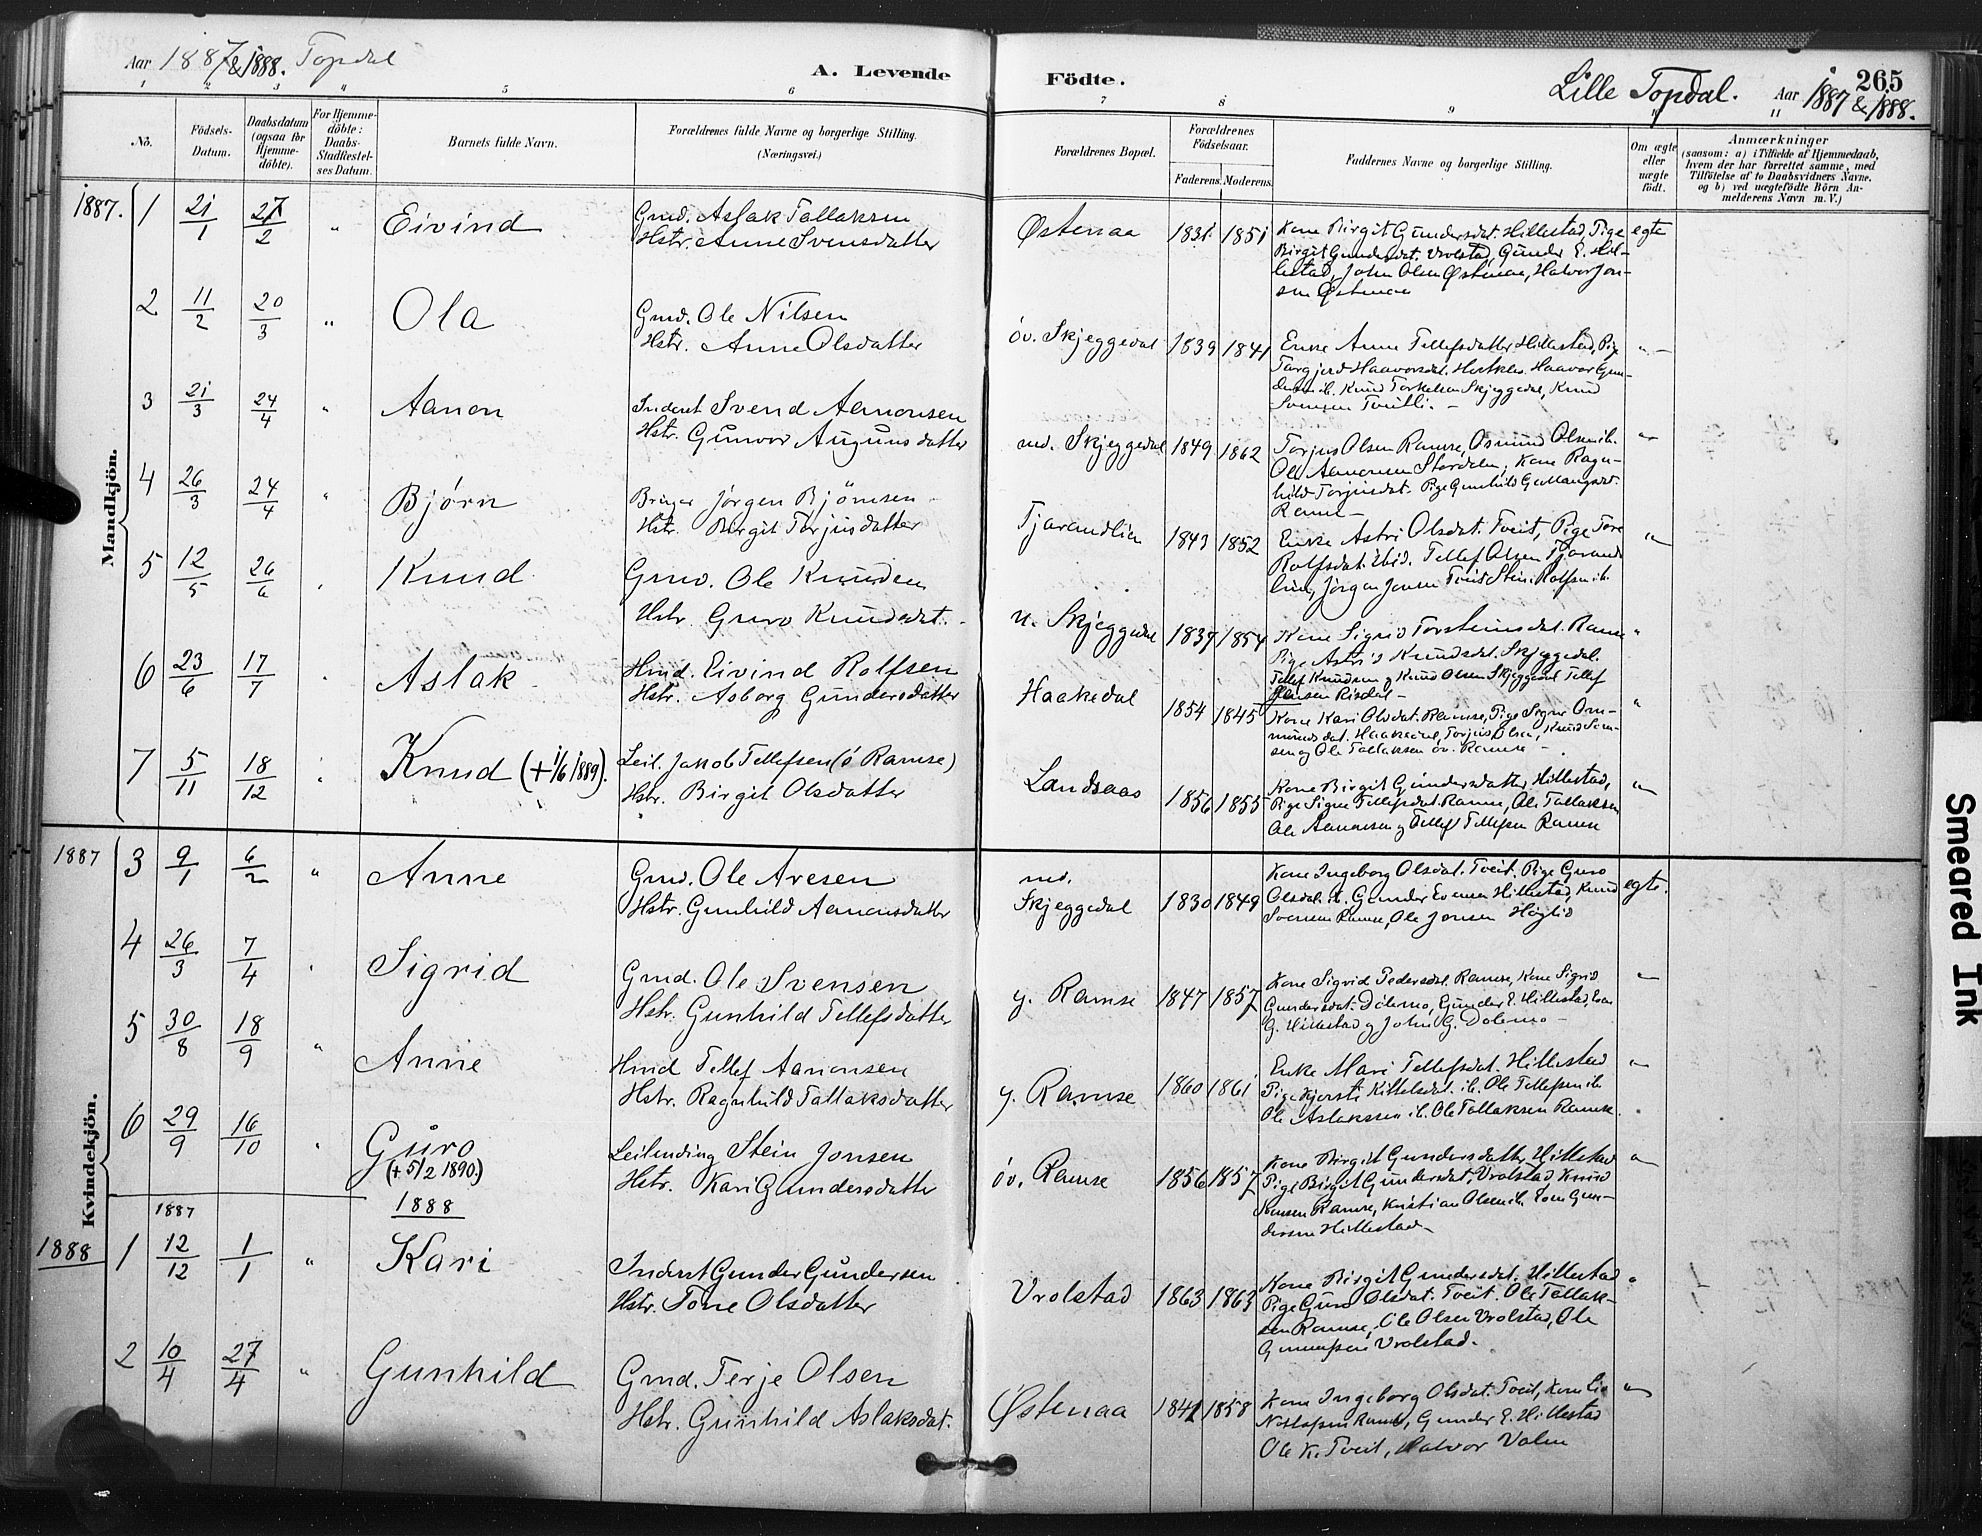 Aar 1887 & 1888. Topdal
A. Levende Födte.
Lille Topdal. Aar 1887 & 1888.
265
1 2 3 4 5 6 7 8 9 10 11
No.
Födsels-Datum.
Daabsdatum (ogsaa for Hjemme-döbte).
For Hjemme-döbte: Daabs-Stadfæstel-ses Datum.
Barnets fulde Navn.
Forældrenes fulde Navne og borgerlige Stilling. (Næringsvei.)
Forældrenes Bopæl.
Forældrenes Födselsaar.
Faderens. Moderens.
Faddernes Navne og borgerlige Stilling.
Om ægte eller uægte födt.
Anmærkninger
(saasom: a) i Tilfælde af Hjemmedaab, hvem der har forrettet samme, med Tilföielse af to Daabsvidners Navne, og b) ved uægtefödte Börn Anmelderens Navn m. V.)
Mandkjön.
1887. 1 21/1 27/2 " Eivind
Gmd. Aslak Tallaksen
Hstr. Anne Svensdatter
Østenaa 1831 1851
Kone Birgit Gundersdat. Hillestad, Pige
Birgit Gundersdat. Vrolstad, Gunder E. Hil-
lestad, John Olsen Østenaa, Halvor Jon-
sen Østenaa
egte
2 11/2 20/3 " Ola
Gmd. Ole Nilsen
Hstr. Anne Olsdatter
öv. Skjeggedal 1839 1841
Enke Anne Tellefsdatter Hillestad, Pige
Targjerd Haavorsdat. Haavor Gun-
dersen ib. Knud Torkelsen Skjeggedal, Knud
Svensen Tveitli. -
3 21/3 24/4 " Aanon
Inderst Svend Aanonsen
Hstr. Gunvor Augunsdatter
md. Skjeggedal 1849 1862
Torjus Olsen Ramse, Osmund Olsen ib.
Ole Aanonsen Stordalen, Kone Ragn-
hild Torjusdat. Pige Gunhild
Ramse -
4 26/3 24/4 " Björn
Bruger Jörgen Björnsen
Hstr. Birgit Torjusdatter
Tjarandlien 1843 1852
Enke Astri Olsdat. Tveit, Pige Tore
Rolfsdat. ibid. Tellef Olsen Tjarand-
lien, Jörgen Jonsen Tveit Stein Rolfsen ib.
5 12/5 26/6 Knud
Gmd. Ole Knudsen
Hstr. Guro Knudsdat.
n. Skjeggedal 1839 1854
Kone Sigrid Torsteinsdat. Ramse
Pige Astrid Knudsdat. Skjeggedal.
Tellef Knudsen og Knud Olsen Skjeggedal Tellef
Jensen Risdal -
6 23/6 17/7 Aslak
Hmd. Eivind Rolfsen
Hstr. Asborg Gundersdatter
Haakedal 1854 1845
Kone Kari Olsdat. Ramse, Pige Signe Os-
mundsdat. Haakedal, Torjus Olsen, Knud
og Ole Tallaksen öv. Ramse -
7 5/11 18/12 Knud (+ 1/6 1889).
Leil. Jakob Tellefsen (ö Ramse)
Hstr. Birgit Olsdatter
Landsaas 1856 1855
Kone Birgit Gundersdatter Hillestad,
Pige Signe Tellefsdat. Ramse, Ole Tallaksen
Ole Aanonsen og Tellef Tellefsen Ramse
Kvindekjön.
1887 3 9/1 6/2 " Anne
Gmd. Ole Aresen
Hstr. Gunhild Aanonsdatter
md. Skjeggedal 1830 1849
Kone Ingeborg Olsdat. Tveit, Pige Guro
Olsdat. ib. Gunder Evensen Hillestad, Knud
Svensen Ramse, Ole Jonsen Höglid
egte.
4 26/3 7/4 Sigrid
Gmd. Ole Svensen
Hstr. Gunhild Tellefsdatter
y. Ramse 1847 1857
Kone Sigrid Pedersdat. Ramse, Kone Sigrid
Gundersdat. Dölemo, Gunder E. Hillestad, Even
G. Hillestad og John G. Dölemo -
5 30/8 18/9 " Anne
Hmd Tellef Aanonsen
Hstr. Ragnhild Tallaksdatter
y. Ramse 1860 1861
Enke Mari Tellefsdat. Hillestad
Pige Kjersti Kittelsdat. ib. Ole Tellefsen ib.
Ole Aslakssen ib. Ole Tallaksen Ramse.
6 29/9 16/10 " Guro
(+ 5/2 1890.)
Leilending Stein Jonsen
Hstr. Kari Gundersdatter
öv. Ramse 1856 1857
Kone Birgit Gundersdatter Hillestad
Pige Birgit Gundersdat. Vrolstad Knud
Jonsen Ramse, Kristian Olsen ib. Even Gun-
dersen Hillestad -
1888
1887
1888 1 12/12 1/1 " Kari
Inderst Gunder Gundersen
Hstr. Tone Olsdatter
Vrolstad 1863 1863
Kone Birgit Gundersdat. Hillestad
Pige Guro Olsdat. Tveit. Ole Tallak-
sen Ramse, Ole Olsen Vrolstad, Ole
Gunnufsen Vrolstad.
2 10/4 27/4 " Gunhild
Gmd. Terje Olsen
Hstr. Gunhild Aslaksdat.
Østenaa 1841 1858
Kone Ingeborg Olsdat. Tveit, Kone Liv
Ramse, Gunder E. Hillestad
Ole K. Tveit, Halvor Valen
Smeared Ink